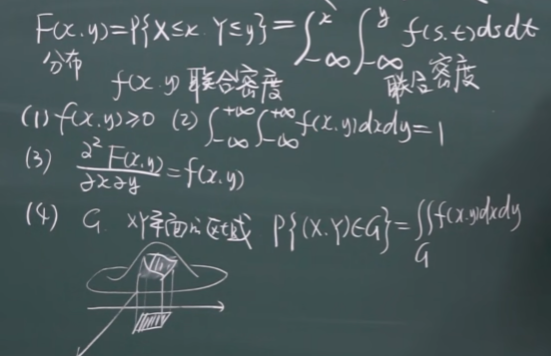 F(x.y)=P{X≤x. Y≤y}=∫_{-∞}^{x}∫_{-∞}^{y} f(s.t)dsdt
分布
f(x.y) 联合密度 联合密度
(1) f(x.y)≥0 (2) ∫_{-∞}^{+∞}∫_{-∞}^{+∞} f(x.y)dxdy=1
(3) ∂²F(x.y)/∂x∂y=f(x.y)
(4) G. XY平面的区域 P{(X.Y)∈G}=∬_G f(x.y)dxdy